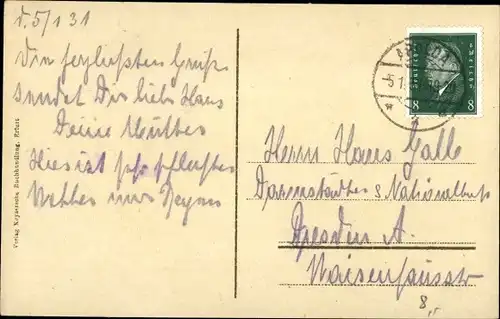 d. 5/1 31
Die herzlichsten Grüße
sendet Dir lieber Hans
Deine Mutter
Hier ist sehr schlechtes
Wetter nur Regen
Verlag Keysersche Buchhandlung, Erfurt
Deutsches Reich
8 8
5.1.
Herrn Hans Galle
Darmstädter & Nationalbank
Dresden A.
Waisenhausstr
8,-